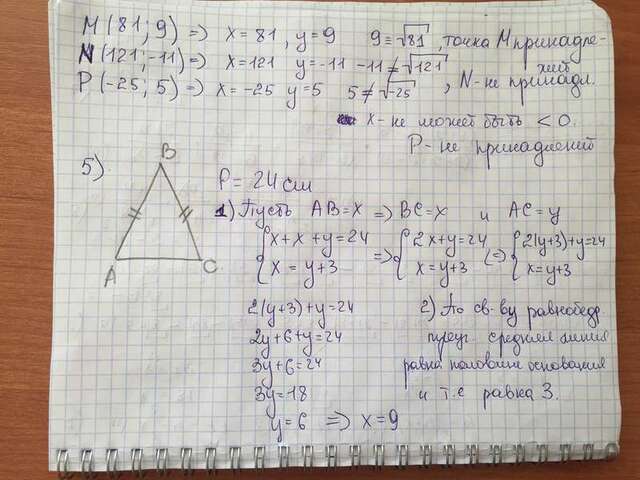 M(81; 9) => x = 81, y=9 9=√81, точка M принадле-
жит
N(121; -11) => x=121 y=-11 -11≠√121, N-не принадл.
P(-25; 5) => x=-25 y=5 5≠√-25
x-не может быть <0.
P-не принадлежит
5).
B
A
C
P=24см
1) Пусть AB=x => BC=x и AC=y
{x+x+y=24 => {2x+y=24 (=) {2(y+3)+y=24
{x=y+3 {x=y+3 {x=y+3
2(y+3)+y=24
2y+6+y=24
3y+6=24
3y=18
y=6 => x=9
2) По св-ву равнобедр.
треуг. средняя линия
равна половине основания
и т.е равна 3.